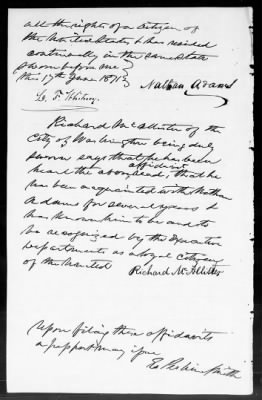 all the rights of a Citizen of
the United States & has resided
continually in the same State
Sworn before me
this 17th June 1871
Nathan Adams
C. F. Whitney
Richard McAllister of the
City of Washington being duly
sworn says that he has been
affidavit
heard the above read, that he
has been acquainted with Nathan
Adams for several years &
has known him to be and to
be recognized by the Executive
departments as a loyal Citizen
of the United
Richard McAllister
Upon filing these affidavits
a passport may issue
Smith